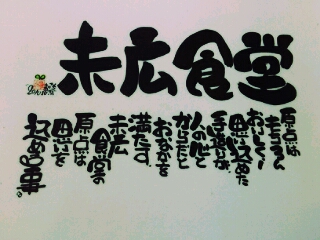 末広食堂
原点は
もちろん
おいしく!
思い込めた
手造りは、
人の心と
からだと
おなかを
満たす。
末広
食堂の
原点は
思いを
込める事。